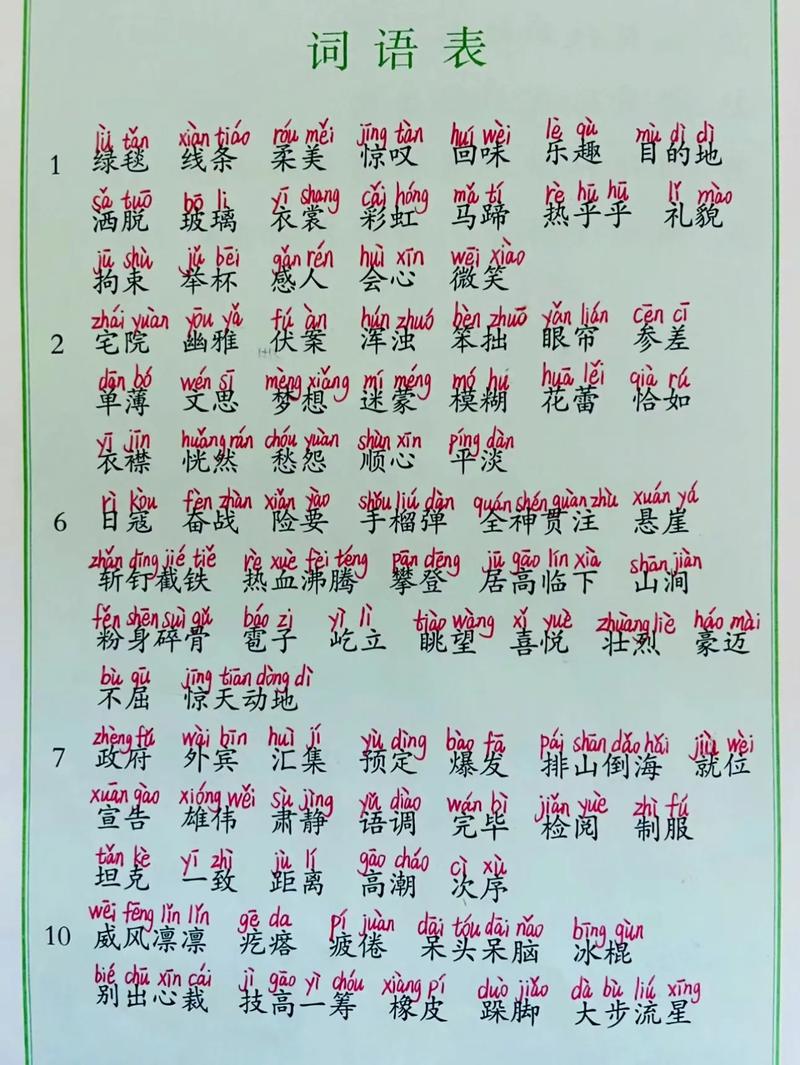 词语表
lǜ tǎn xiàn tiáo róu měi jīng tàn huí wèi lè qù mù dì dì
1 绿毯 线条 柔美 惊叹 回味 乐趣 目的地
sǎ tuō bō li yī shang cǎi hóng mǎ tí rè hū hū lǐ mào
洒脱 玻璃 衣裳 彩虹 马蹄 热乎乎 礼貌
jū shù jǔ bēi gǎn rén huì xīn wēi xiào
拘束 举杯 感人 会心 微笑
zhái yuàn yōu yǎ fú àn hún zhuó bèn zhuō yǎn lián cēn cī
2 宅院 幽雅 伏案 浑浊 笨拙 眼帘 参差
dān bó wén sī mèng xiǎng mí méng mó hu huā lěi qià rú
单薄 文思 梦想 迷蒙 模糊 花蕾 恰如
yī jīn huǎng rán chóu yuàn shùn xīn píng dàn
衣襟 恍然 愁怨 顺心 平淡
rì kòu fèn zhàn xiǎn yào shǒu liú dàn quán shén guàn zhù xuán yá
6 日寇 奋战 险要 手榴弹 全神贯注 悬崖
zhǎn dīng jié tiě rè xuè fèi téng pān dēng jū gāo lín xià shān jiàn
斩钉截铁 热血沸腾 攀登 居高临下 山涧
fěn shēn suì gǔ báo zi yì lì tiào wàng xǐ yuè zhuàng liè háo mài
粉身碎骨 雹子 屹立 眺望 喜悦 壮烈 豪迈
bù qū jīng tiān dòng dì
不屈 惊天动地
zhèng fǔ wài bīn huì jí yù dìng bào fā pái shān dǎo hǎi jiù wèi
7 政府 外宾 汇集 预定 爆发 排山倒海 就位
xuān gào xióng wěi sù jìng yǔ diào wán bì jiǎn yuè zhì fú
宣告 雄伟 肃静 语调 完毕 检阅 制服
tǎn kè yī zhì jù lí gāo cháo cì xù
坦克 一致 距离 高潮 次序
wēi fēng lǐn lǐn gē da pí juàn dāi tóu dāi nǎo bīng gùn
10 威风凛凛 疙瘩 疲倦 呆头呆脑 冰棍
bié chū xīn cái jì gāo yì chóu xiàng pí duò jiǎo dà bù liú xīng
别出心裁 技高一筹 橡皮 跺脚 大步流星